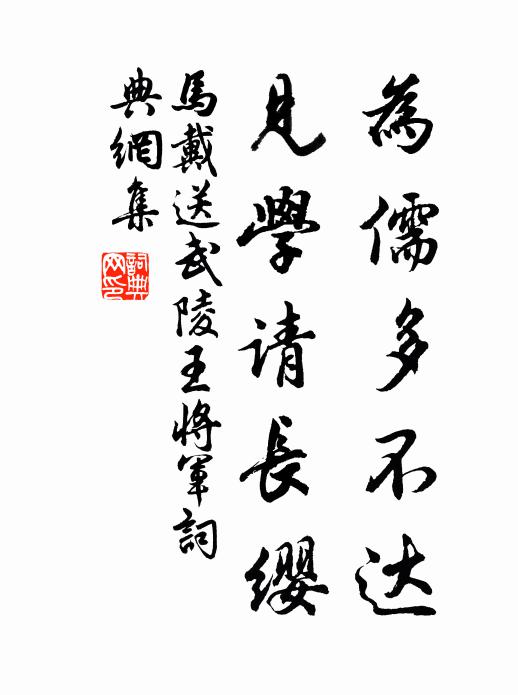 為儒多不达
見學请長缨
馬戴送武陵王將軍詞
典網集
詞典
网印